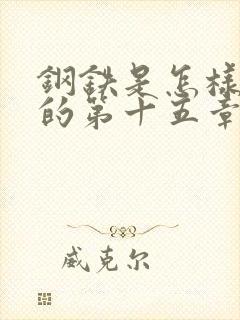 鋼鉄是怎樣
的第十五章
威克尔